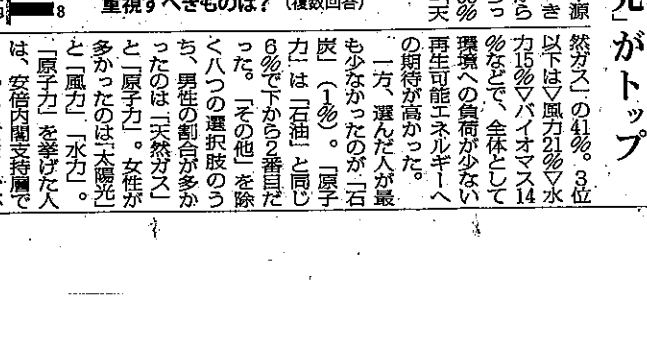 光」がトップ
重視すべきものは？（複数回答）
8
源
き
ら
っ
%
「天
然ガス」の41%。3位
以下は▽風力21%▽水
力15%▽バイオマス14
%などで、全体として
環境への負荷が少ない
再生可能エネルギーへ
の期待が高かった。
一方、選んだ人が最
も少なかったのが「石
炭」（1%）。「原子
力」は「石油」と同じ
6%で下から2番目だ
った。「その他」を除
く八つの選択肢のう
ち、男性の割合が多か
ったのは「天然ガス」
と「原子力」。女性が
多かったのは「太陽光」
と「風力」「水力」。
「原子力」を挙げた人
は、安倍内閣支持層で